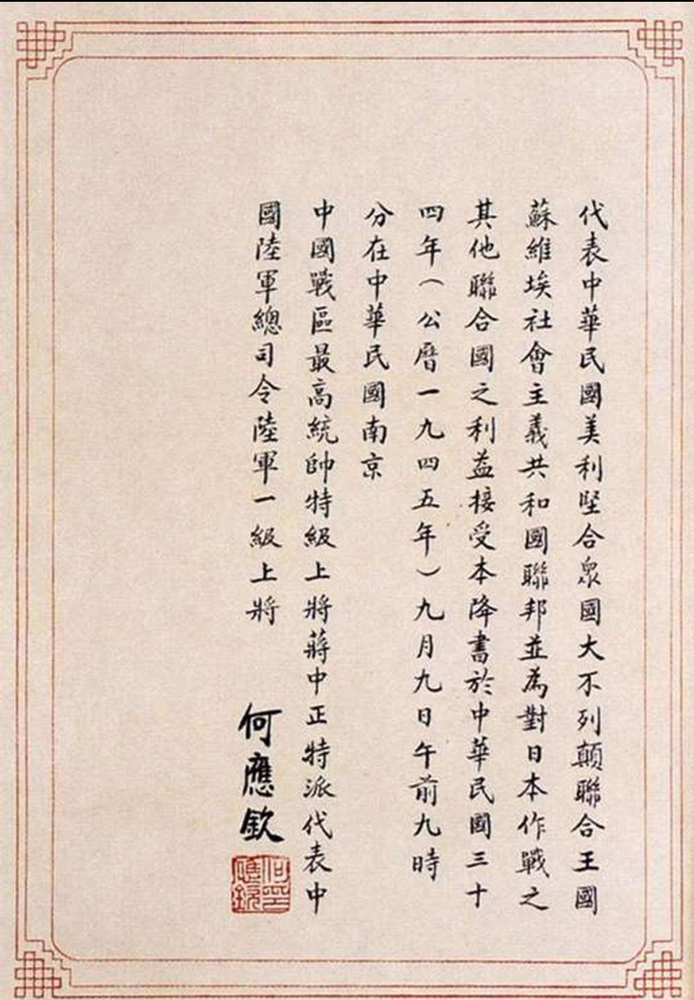 代表中華民國美利堅合衆國大不列顛聯合王國
蘇維埃社會主義共和國聯邦並為對日本作戰之
其他聯合國之利益接受本降書於中華民國三十
四年(公曆一九四五年)九月九日午前九時
分在中華民國南京
中國戰區最高統帥特級上將蔣中正特派代表中
國陸軍總司令陸軍一級上將
何應欽
何應欽印